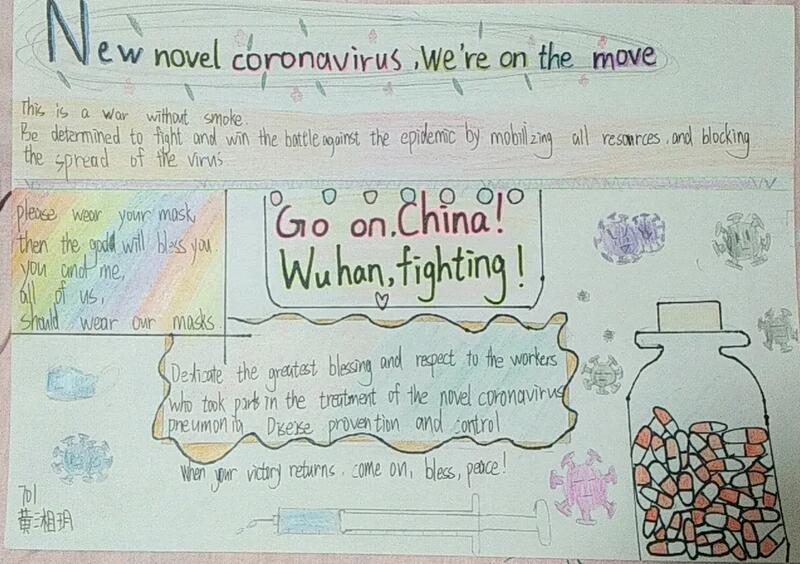 New novel coronavirus, We're on the move
This is a war without smoke.
Be determined to fight and win the battle against the epidemic by mobilizing all resources, and blocking
the spread of the virus
please wear your mask,
then the god will bless you.
you and me,
all of us,
should wear our masks
Go on, China!
Wuhan, fighting!
Dedicate the greatest blessing and respect to the workers
who took parts in the treatment of the novel coronavirus
pneumonia Disease provention and control
When your victory returns, come on, bless, peace!
701
黄湘玥